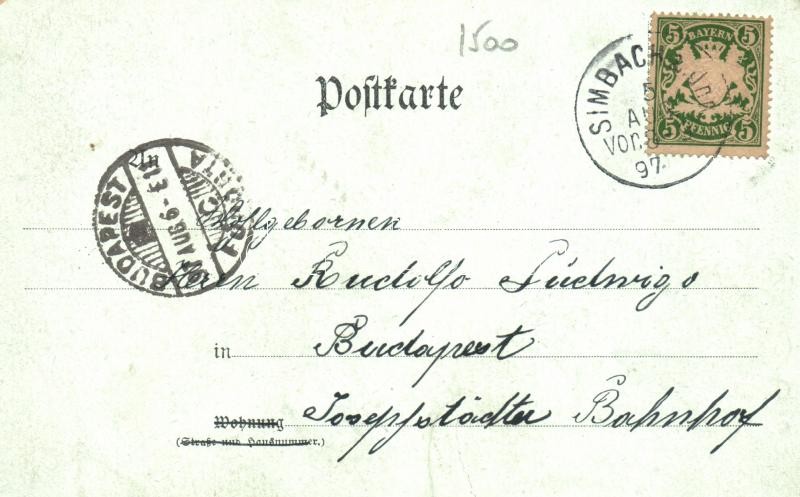 1500
BAYERN
5 5
5 5
PFENNIG
SIMBACH
5
AU
Vor.
97
Postkarte
An
BUDAPEST
AUG. 6
Wohlgebornen
Herrn Rudolfo Ludwigo
in Budapest
Wohnung Josephstädter Bahnhof
(Straße und Hausnummer.)